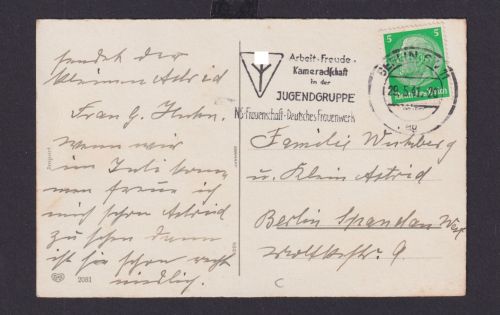 sendet der
kleinen Astrid
Frau G. Huhn.
wenn wir
im Juli kom-
men freue ich
mich schon Astrid
zu sehen dann
ist sie schon recht
niedlich.
2081
Arbeit-Freude-
Kameradschaft
in der
JUGENDGRUPPE
NS-Frauenschaft-Deutsches Frauenwerk
5
5
Deutsches Reich
BERLIN
Familie
u. Klein Astrid
Berlin Spandau West
9.
C